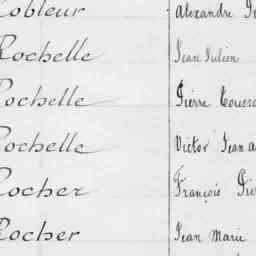 Alexandre
Rochelle Jean Julien
Rochelle Pierre
Rochelle Victor Jean
Rocher François
Rocher Jean Marie